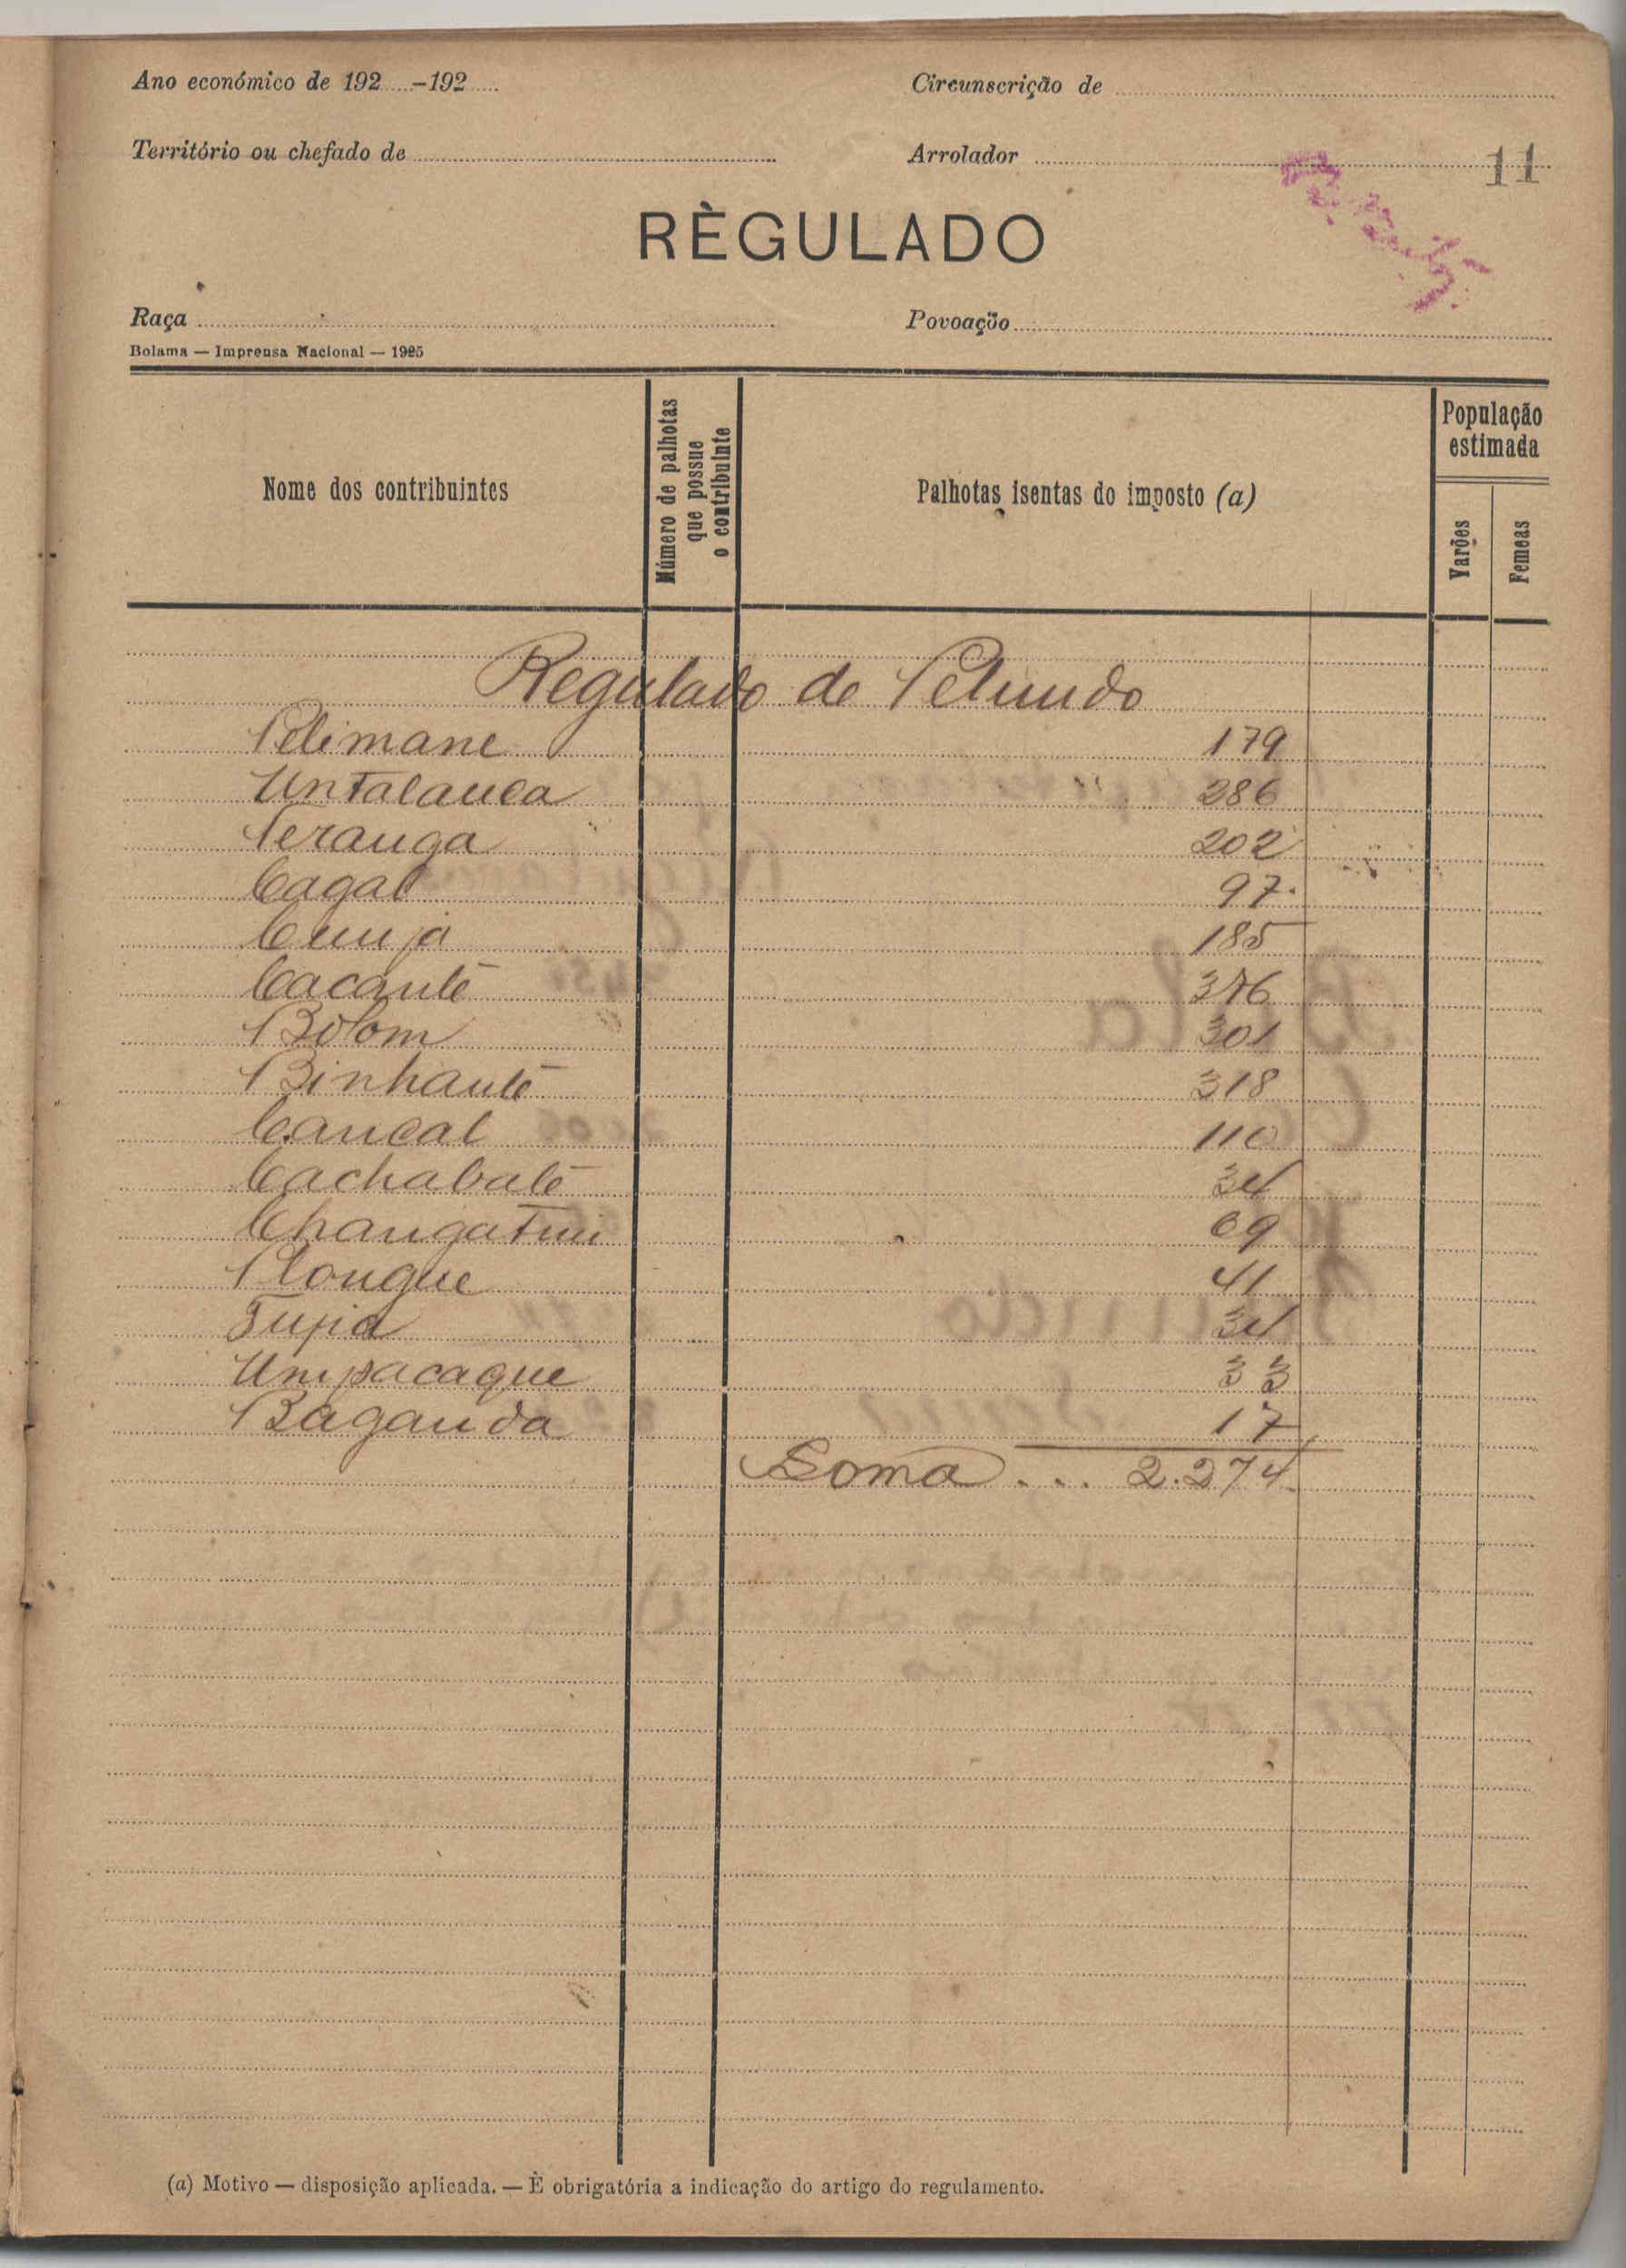 Ano económico de 192.....-192.....
Circunscrição de
Território ou chefado de
Arrolador
11
RÈGULADO
Raça
Povoação
Bolama — Imprensa Nacional — 1925
Nome dos contribuintes
Número de palhotas que possue o contribuinte
Palhotas isentas do imposto (a)
População estimada
Varões
Femeas
Regulado de Pelundo
Pelimane 179
Untalauca 286
Peranga 202
Cagal 97
Cunja 185
Cacanté 376
Bolom 301
Binhanté 318
Caucal 110
Cachabaté 34
Changatuii 69
Plongue 41
Tupia 34
Umpacaque 33
Baganda 17
Soma ... 2.274
(a) Motivo — disposição aplicada. — È obrigatória a indicação do artigo do regulamento.